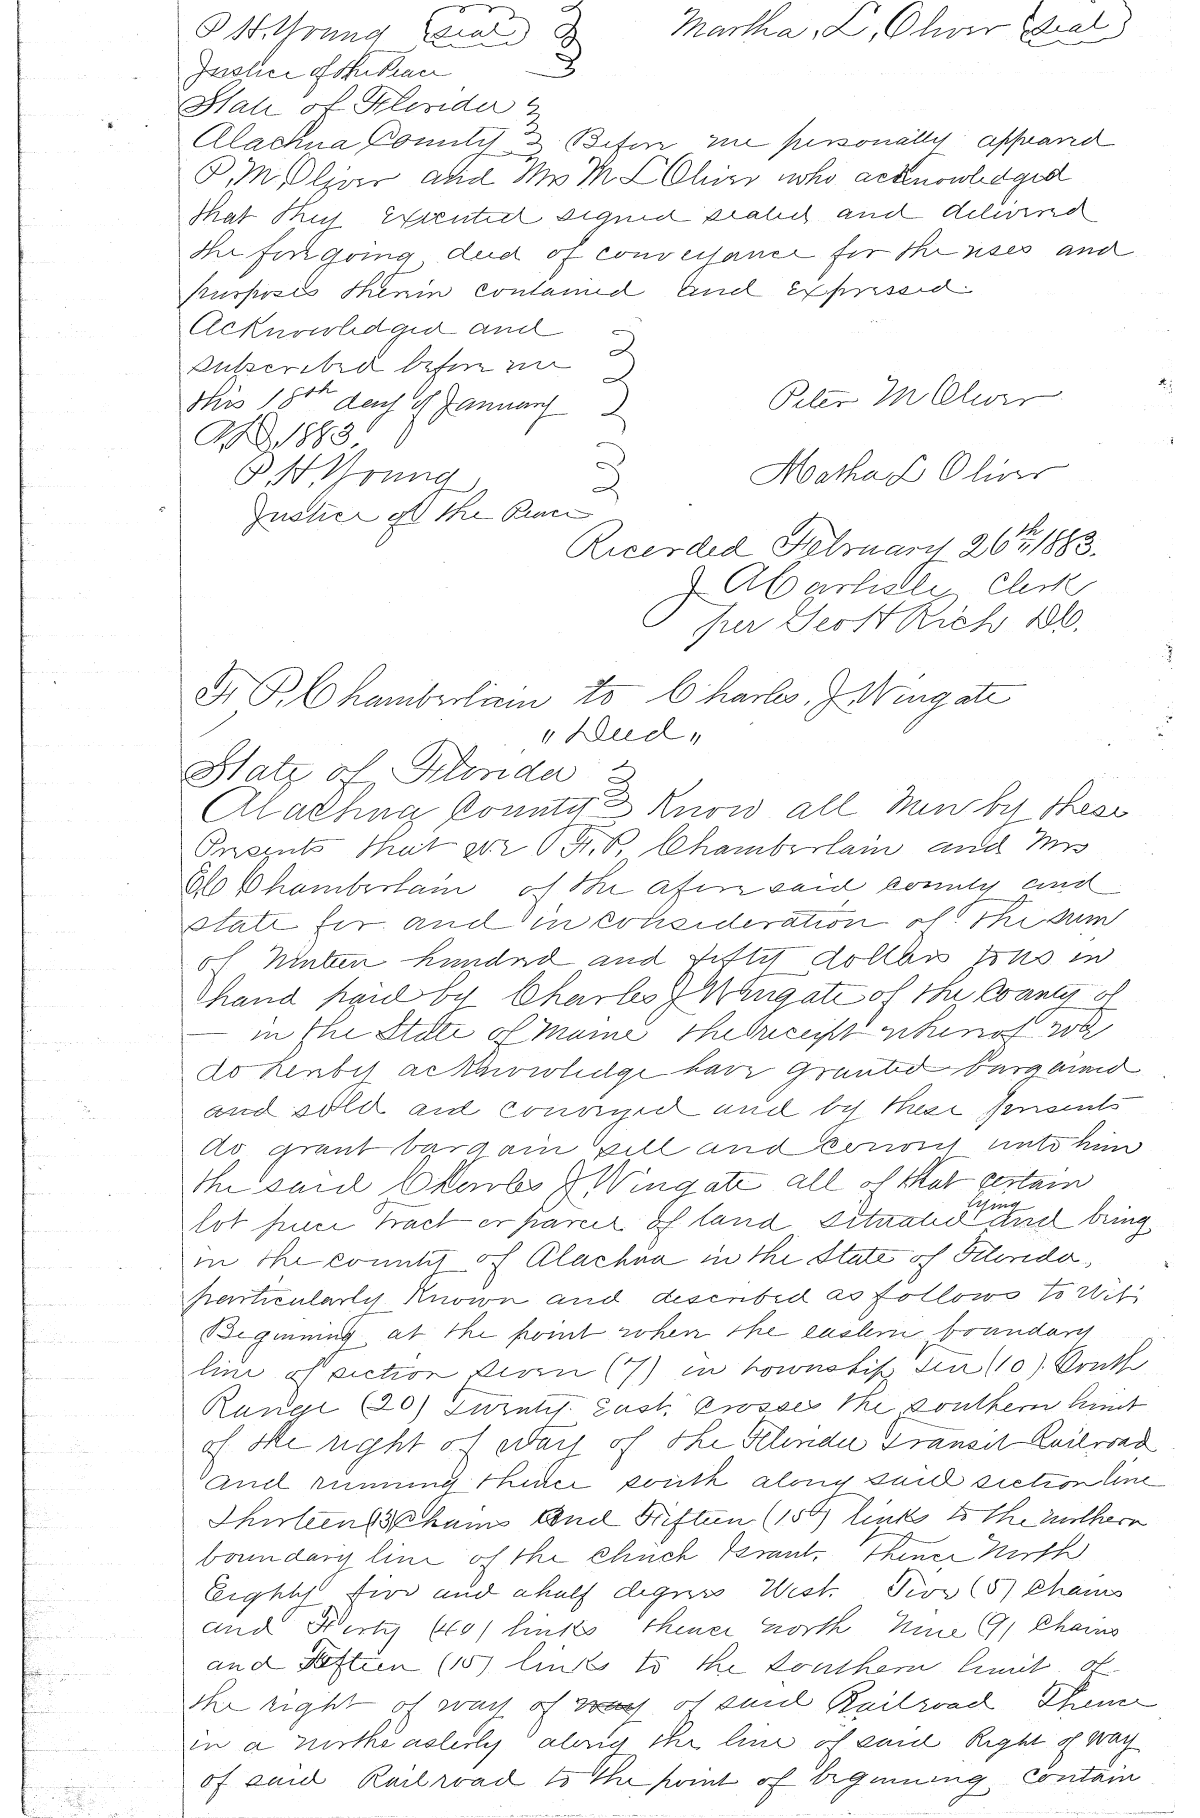 P H. Young (Seal) Martha, L, Oliver (Seal)
Justice of the Peace
State of Florida
Alachua County Before me personally appeared
P. M. Oliver and Mrs M L Oliver who acknowledged
that they executed signed sealed and delivered
the foregoing deed of conveyance for the uses and
purposes therein contained and expressed.
Acknowledged and
subscribed before me
this 18th day of January Peter M Oliver
A,D, 1883.
P. H. Young Matha L Oliver
Justice of the Peace
Recorded February 26th, 1883.
J A Carlisle, Clerk
per Scott Rich DC.
F. P. Chamberlain to Charles, J, Wingate
"Deed"
State of Florida
Alachua County Know all Men by these
Presents that we F. P. Chamberlain and Mrs
Chamberlain of the afore said county and
state for and in consideration of the sum
of Ninteen hundred and fifty dollars to us in
hand paid by Charles J Wingate of the County of
— in the State of Maine the receipt whereof we
do hereby acknowledge have granted bargained
and sold and conveyed and by these presents
do grant bargain sell and convey unto him
the said Charles J, Wingate all of that certain
lot piece tract or parcel of land situated lying and being
in the county of Alachua in the State of Florida,
particularly known and described as follows to Wit:
Beginning at the point where the eastern boundary
line of section seven (7) in township Ten (10) South
Range (20) Twenty East. Crosses the southern limit
of the right of way of the Florida Transit Railroad
and running thence south along said section line
Thirteen (13) Chains and Fifteen (15) links to the northern
boundary line of the Chuch Grant. Thence North
Eighty five and a half degrees West. Five (5) Chains
and Forty (40) links thence north Nine (9) Chains
and Fiftien (15) links to the southern limit of
the right of way of way of said Railroad Thence
in a northeasterly along the line of said Right of way
of said Railroad to the point of beginning contain